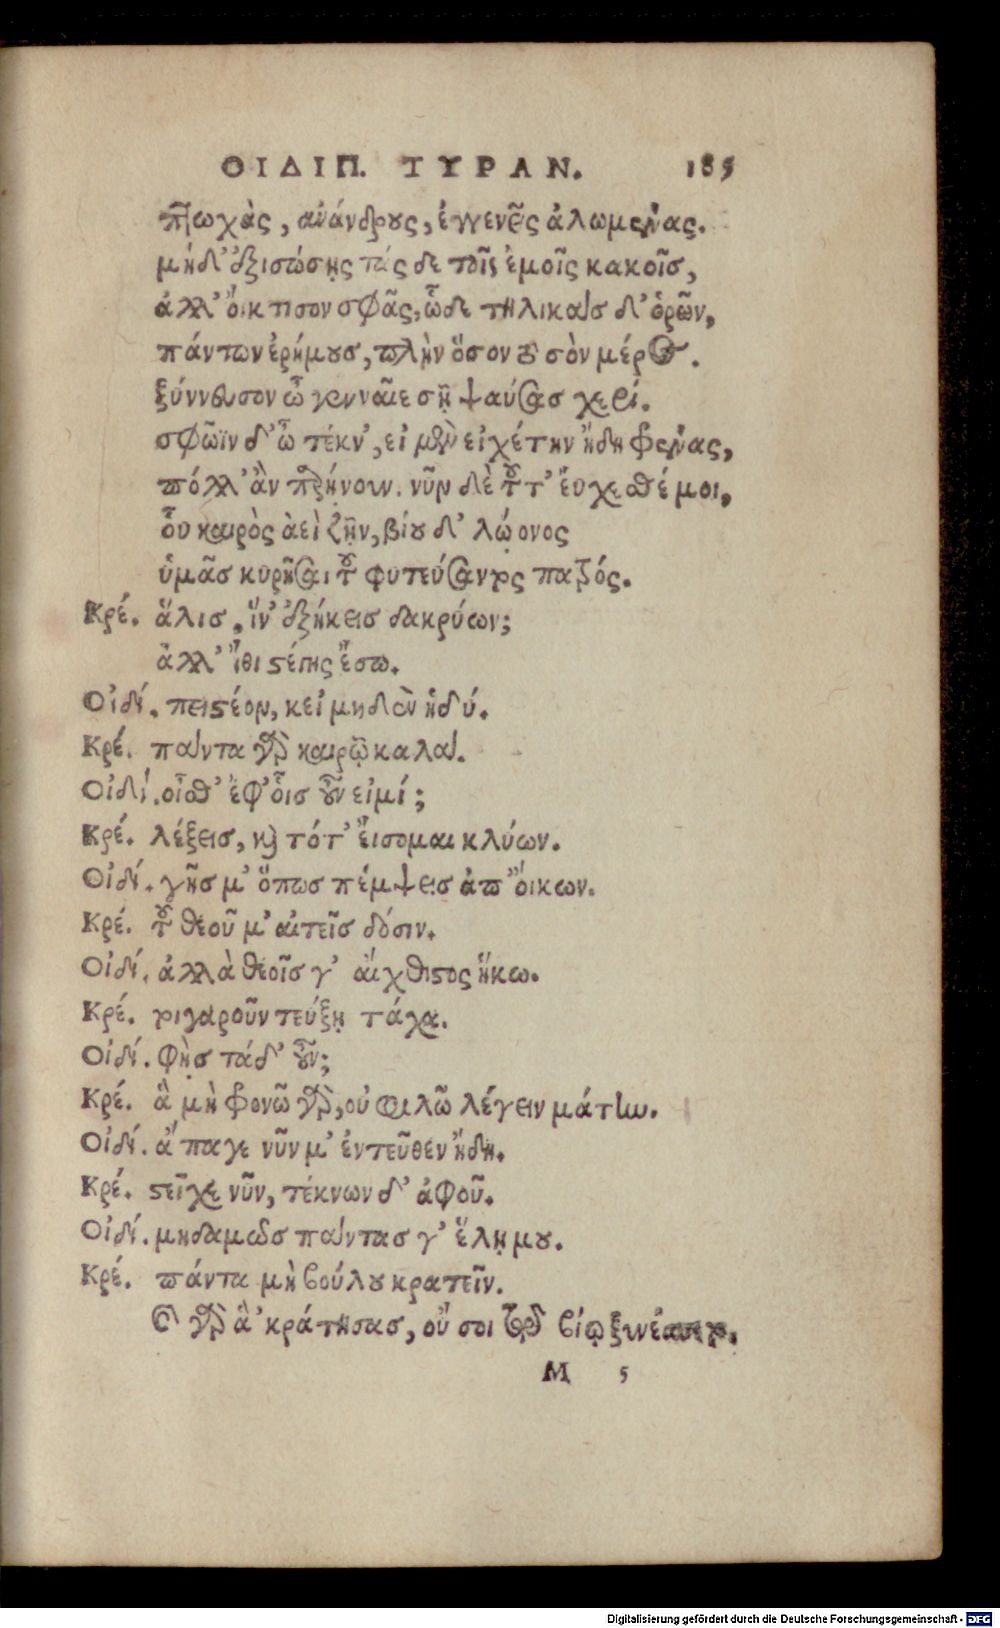 ΟΙΔΙΠ. ΤΥΡΑΝ. 185
πτωχὰς, ἀνάνδρους, ἐγγενεῖς ἀλωμένας.
μήδ' ἐξισώσῃς τάς δε τοῖς ἐμοῖς κακοῖσ,
ἀλλ' ὄικτισον σφᾶς, ὧδε τηλικάσδ' ὁρῶν,
πάντων ἐρήμουσ, πλὴν ὅσον τὸ σὸν μέρος.
ξύννευσον ὦ γενναῖε σῇ ψαύσας χερί.
σφῶϊν δ' ὦ τέκν', εἰ μὲν εἰχέτην ἤδη φρένας,
πόλλ' ἂν παρῄνουν. νῦν δὲ τοῦτ' ἔυχεσθέ μοι,
οὗ καιρὸς ἀεὶ ζῇν, βίου δ' λῴονος
ὑμᾶσ κυρῆσαι τοῦ φυτεύσαντος πατρός.
Κρέ. ἅλισ, ἵν' ἐξήκεισ δακρύων;
ἀλλ' ἴθι στέγης ἔσω.
Οἰδί. πειστέον, κεἰ μηδὲν ἡδύ.
Κρέ. πάντα γὰρ καιρῷ καλά.
Οἰδί. οἶσθ' ἐφ' οἷσ οὖν εἰμί;
Κρέ. λέξεισ, καὶ τότ' ἔισομαι κλύων.
Οἰδί. γῆσ μ' ὅπωσ πέμψεισ ἀπ' ὄικων.
Κρέ. τοῦ θεοῦ μ' αἰτεῖσ δόσιν.
Οἰδί. ἀλλὰ θεοῖσ γ' ἄιχθιστος ἥκω.
Κρέ. τοιγαροῦν τεύξῃ τάχα.
Οἰδί. φῂσ τάδ' οὖν;
Κρέ. ἃ μὴ φρονῶ γὰρ, οὐ φιλῶ λέγειν μάτην.
Οἰδί. ἄπαγε νῦν μ' ἐντεῦθεν ἤδη.
Κρέ. στεῖχε νῦν, τέκνων δ' ἀφοῦ.
Οἰδί. μηδαμῶσ πάντασ γ' ἕλῃ μου.
Κρέ. πάντα μὴ βούλου κρατεῖν.
καὶ γὰρ ἃ 'κράτησας, οὔ σοι τῷ βίῳ ξυνέσπετο.
Μ 5
Digitalisierung gefördert durch die Deutsche Forschungsgemeinschaft - DFG